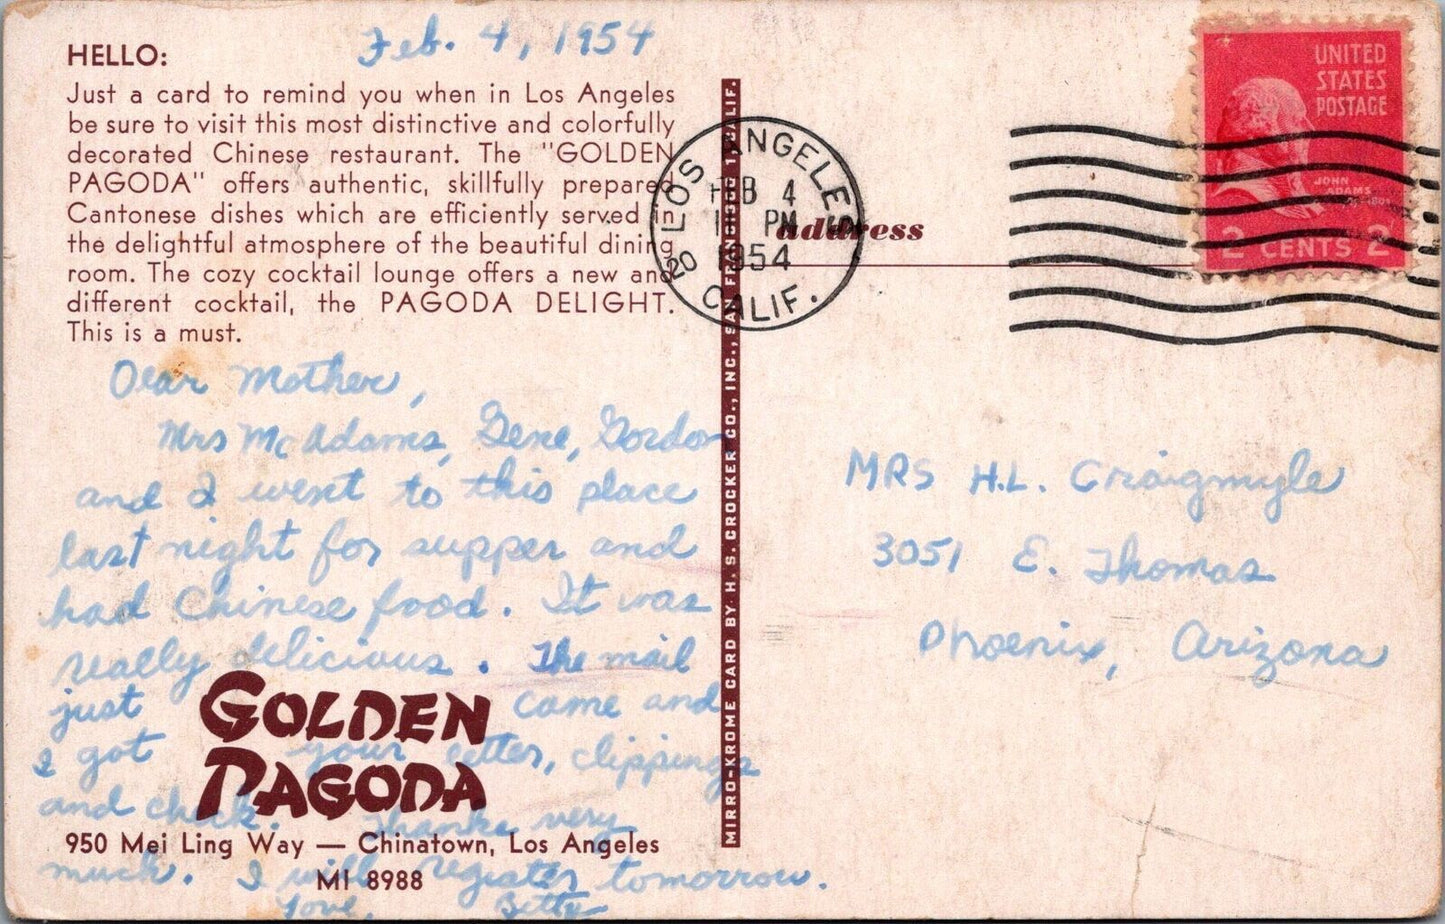 Feb. 4, 1954
HELLO:
Just a card to remind you when in Los Angeles
be sure to visit this most distinctive and colorfully
decorated Chinese restaurant. The "GOLDEN
PAGODA" offers authentic, skillfully prepared
Cantonese dishes which are efficiently served in
the delightful atmosphere of the beautiful dining
room. The cozy cocktail lounge offers a new and
different cocktail, the PAGODA DELIGHT.
This is a must.
Dear Mother,
Mrs McAdams, Gene, Gordon
and I went to this place
last night for supper and
had Chinese food. It was
really delicious. The mail
just came and
I got your letter, clippings
and check. Thanks very
much. I will register tomorrow.
Love, Betty
GOLDEN
PAGODA
950 Mei Ling Way — Chinatown, Los Angeles
MI 8988
MIRRO-KROME CARD BY H. S. CROCKER CO., INC., SAN FRANCISCO 1, CALIF.
LOS ANGELES
FEB 4
PM
1954
20
CALIF.
address
UNITED
STATES
POSTAGE
JOHN
ADAMS
2 CENTS 2
MRS H.L. Craigmyle
3051 E. Thomas
Phoenix, Arizona